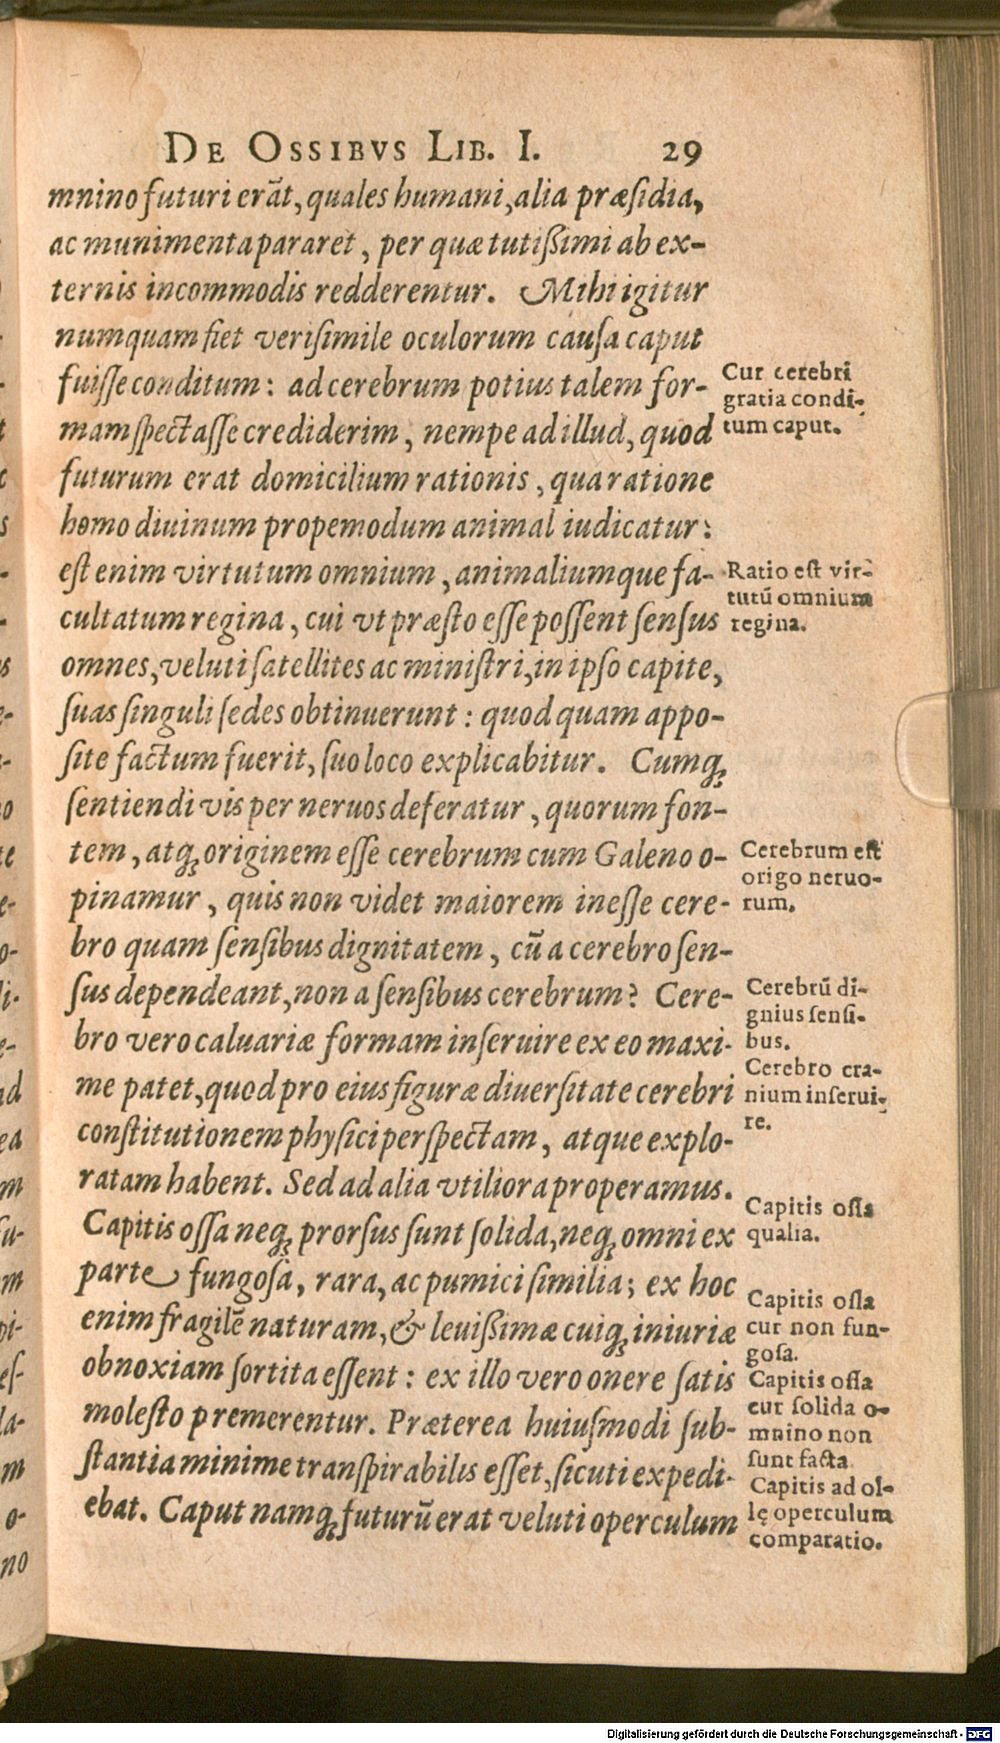 DE OSSIBVS LIB. I. 29
mnino futuri erãt, quales humani, alia præſidia,
ac munimenta pararet, per quæ tutißimi ab ex-
ternis incommodis redderentur. Mihi igitur
numquam fiet veriſimile oculorum cauſa caput
fuiſſe conditum: ad cerebrum potius talem for-
mam ſpectaſſe crediderim, nempe ad illud, quod
futurum erat domicilium rationis, qua ratione
homo diuinum propemodum animal iudicatur:
eſt enim virtutum omnium, animaliumque fa-
cultatum regina, cui vt præſto eſſe poſſent ſenſus
omnes, veluti ſatellites ac miniſtri, in ipſo capite,
ſuas ſinguli ſedes obtinuerunt: quod quam appo-
ſite factum fuerit, ſuo loco explicabitur. Cumq;
ſentiendi vis per neruos deferatur, quorum fon-
tem, atq; originem eſſe cerebrum cum Galeno o-
pinamur, quis non videt maiorem ineſſe cere-
bro quam ſenſibus dignitatem, cũ a cerebro ſen-
ſus dependeant, non a ſenſibus cerebrum? Cere-
bro vero caluariæ formam inſeruire ex eo maxi-
me patet, quod pro eius figuræ diuerſitate cerebri
conſtitutionem phyſici perſpectam, atque explo-
ratam habent. Sed ad alia vtiliora properamus.
Capitis oſſa neq; prorſus ſunt ſolida, neq; omni ex
parte fungoſa, rara, ac pumici ſimilia; ex hoc
enim fragilẽ naturam, & leuißimæ cuiq; iniuriæ
obnoxiam ſortita eſſent: ex illo vero onere ſatis
moleſto premerentur. Præterea huiuſmodi ſub-
ſtantia minime tranſpirabilis eſſet, ſicuti expedi-
ebat. Caput namq; futurũ erat veluti operculum
Cur cerebri
gratia condi-
tum caput.
Ratio eſt vir-
tutũ omnium
regina.
Cerebrum eſt
origo neruo-
rum.
Cerebrũ di-
gnius ſenſi-
bus.
Cerebro cra-
nium inſerui-
re.
Capitis oſſa
qualia.
Capitis oſſa
cur non fun-
goſa.
Capitis oſſa
cur ſolida o-
mnino non
ſunt facta
Capitis ad ol-
lę operculum
comparatio.
Digitalisierung gefördert durch die Deutsche Forschungsgemeinschaft - DFG